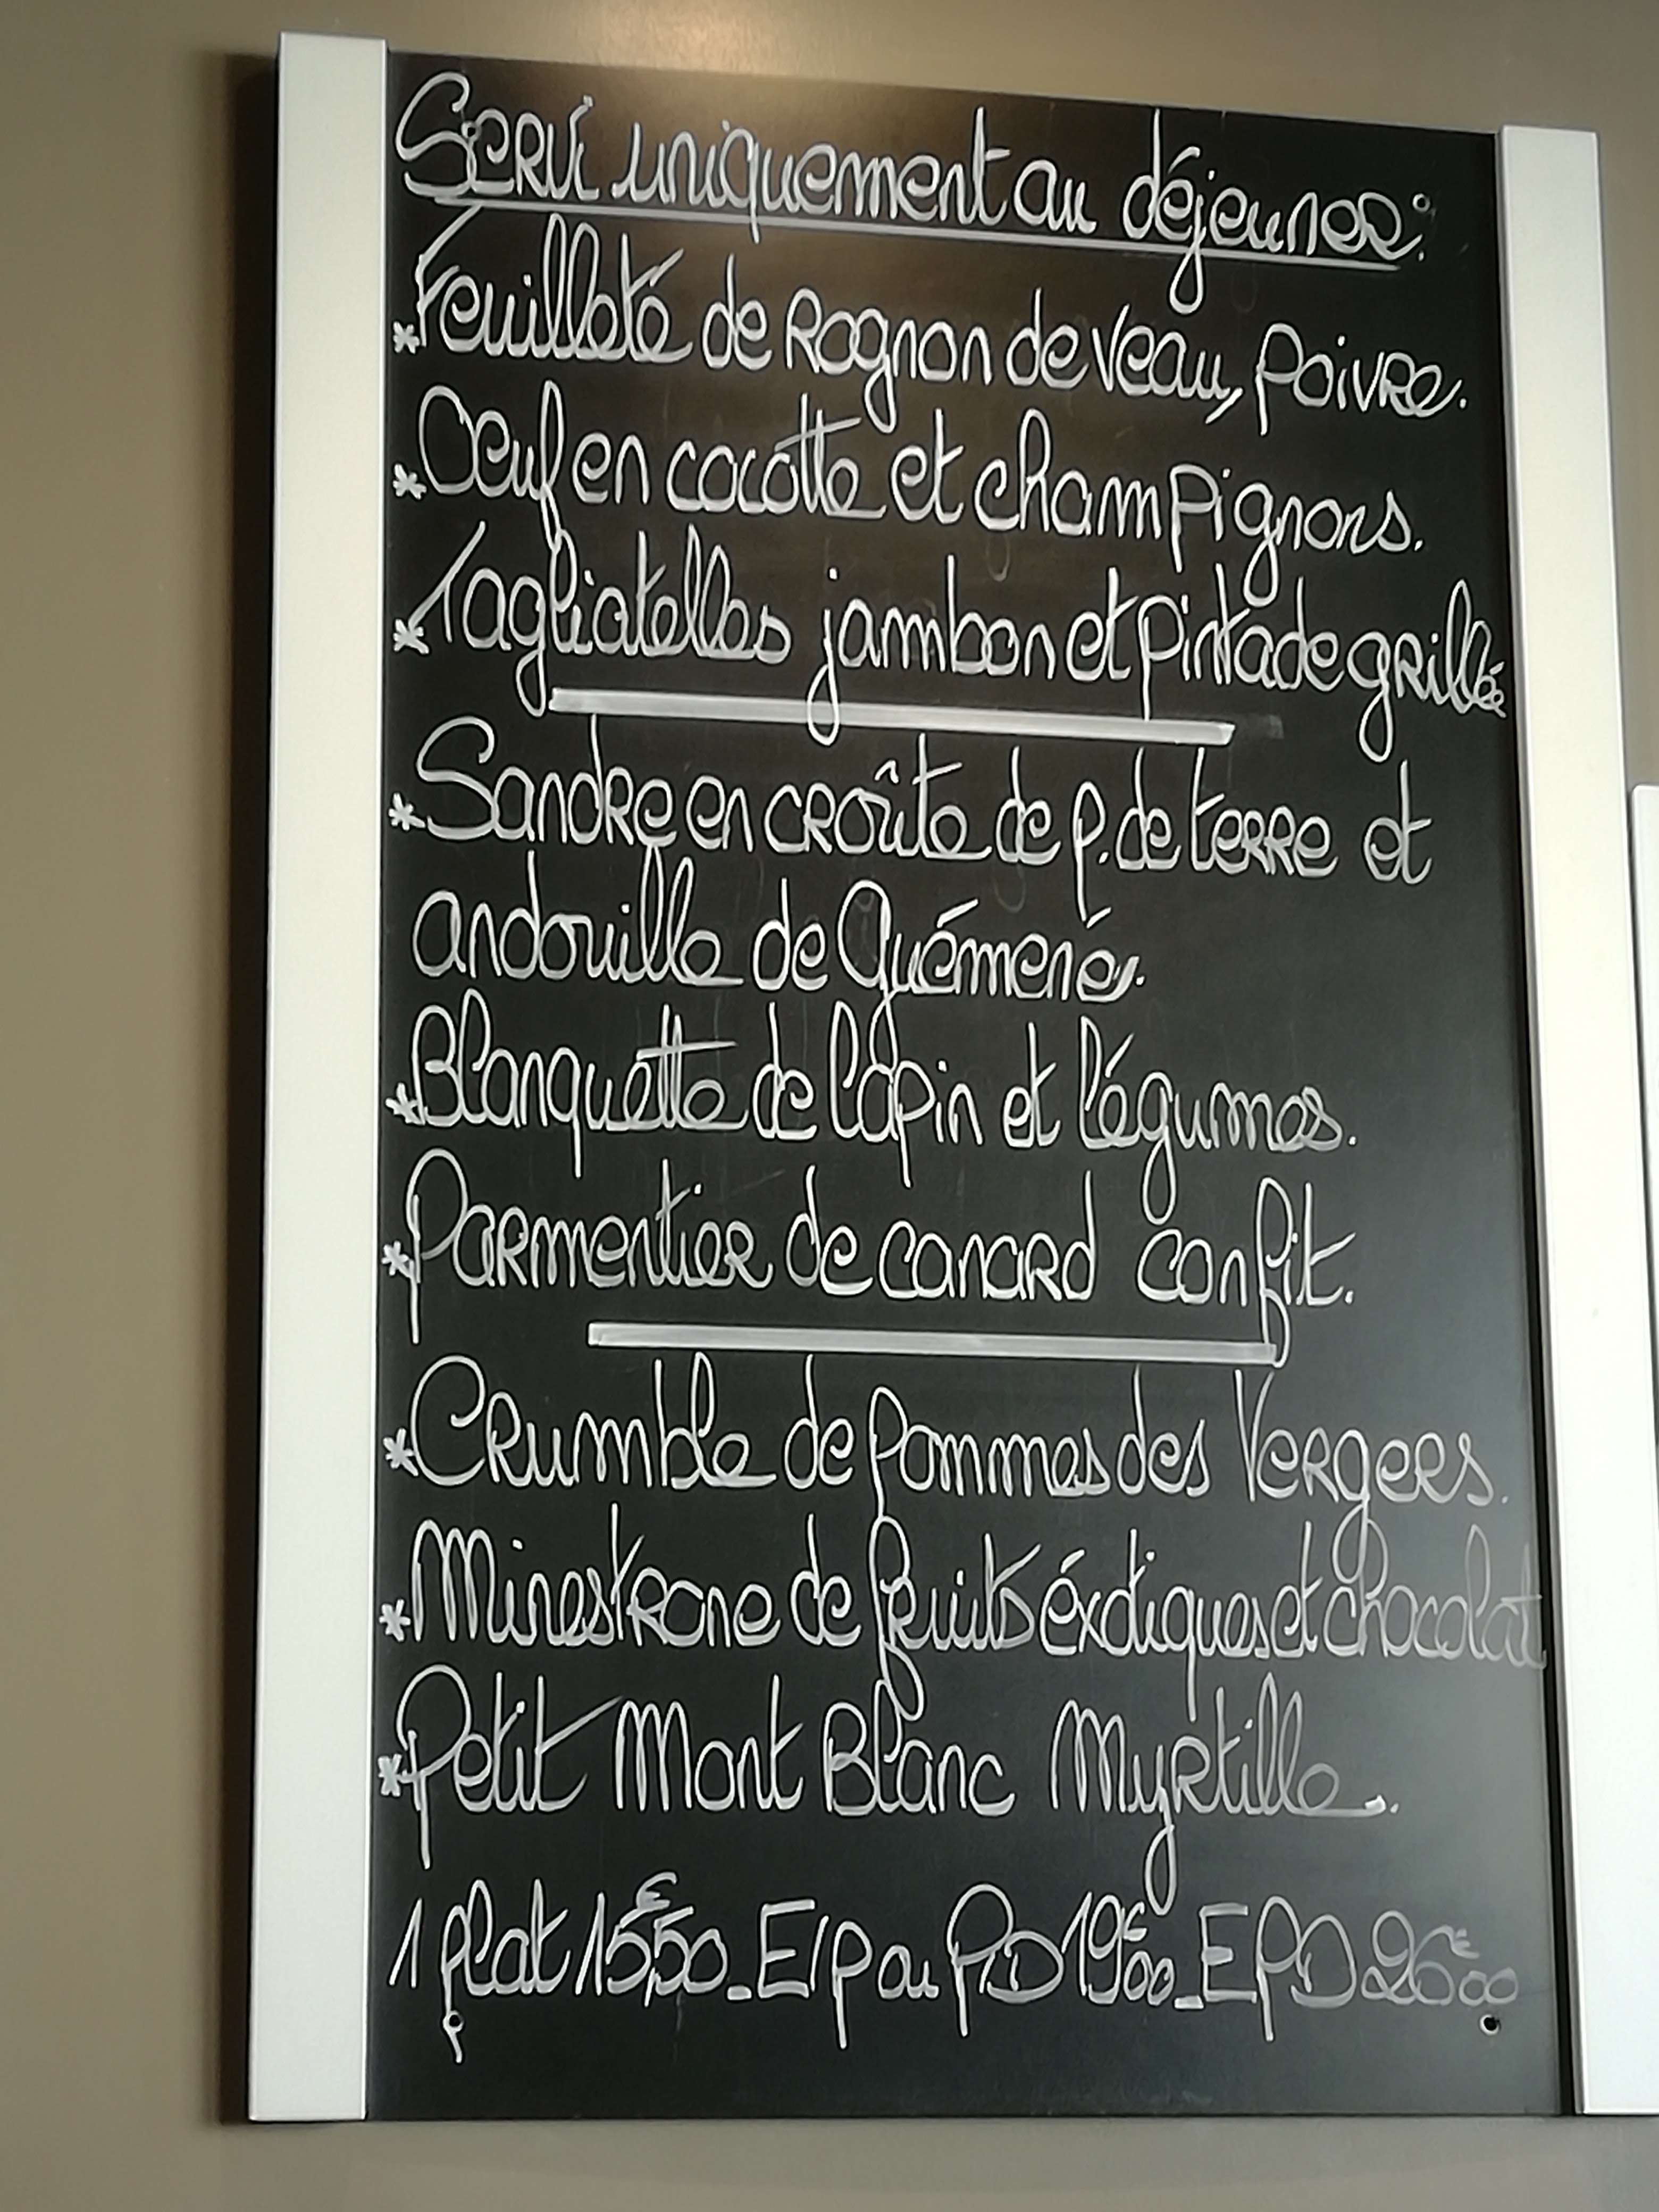 Servi uniquement au déjeuner:
*Feuilleté de Rognon de veau, Poivre.
*Oeuf en cocotte et champignons.
*Tagliatelles jambon et pintade grillée
*Sandre en croûte de p. de terre et
andouille de Guémené.
*Blanquette de lapin et légumes.
*Parmentier de canard confit.
*Crumble de pommes des Vergers.
*Minestrone de fruits éxotiques et chocolat
*Petit Mont Blanc Myrtille.
1 plat 15€,50_E/P ou PD 19€00_EPD 26€00